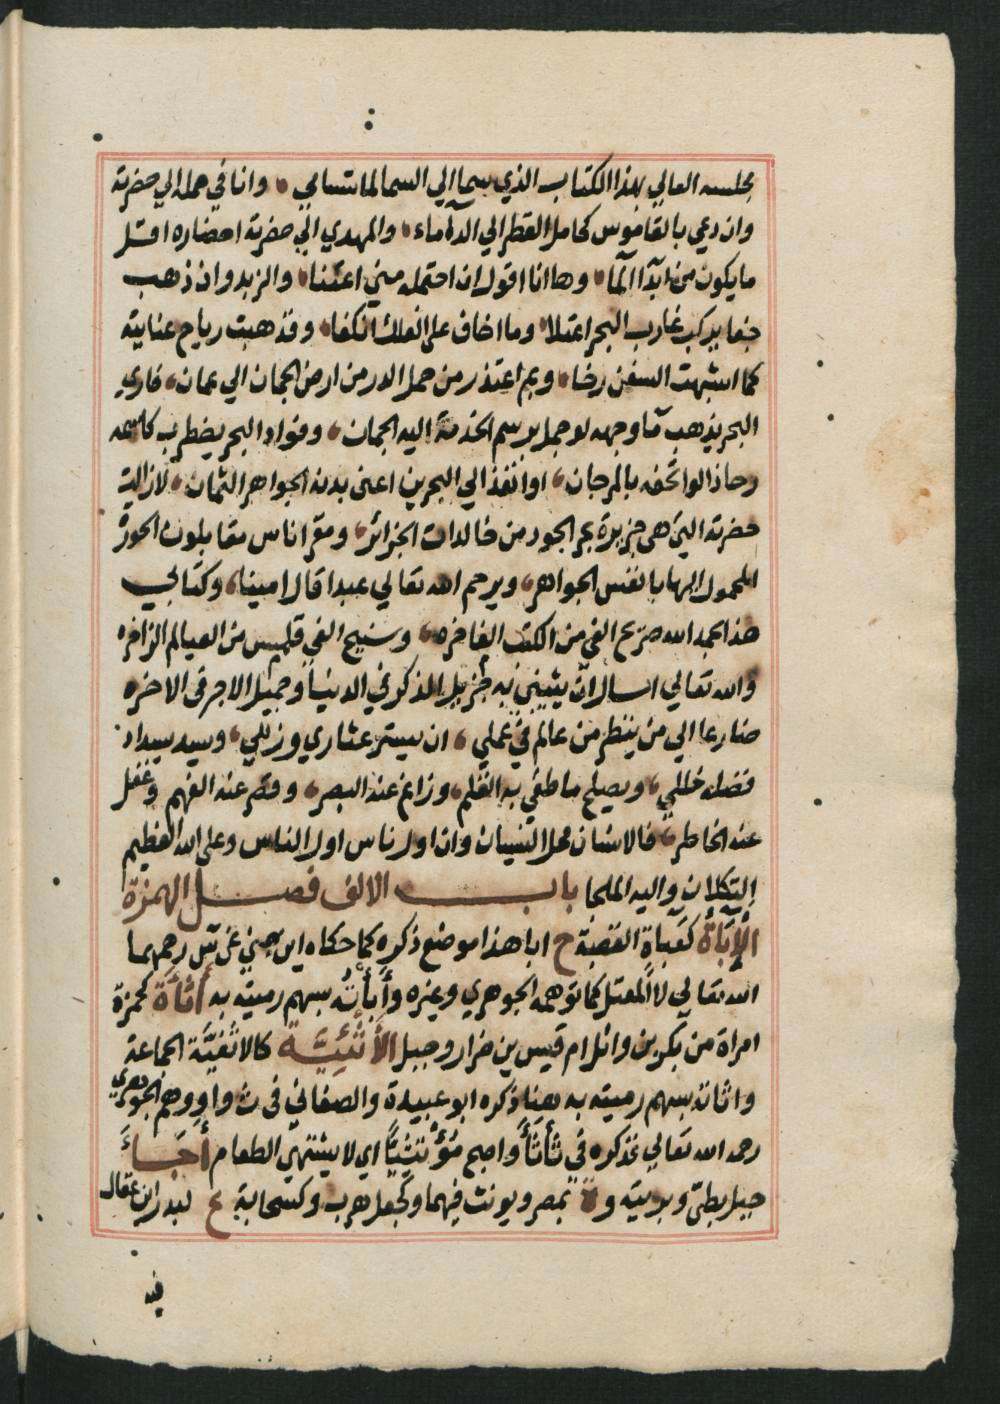 مجلسه العالي بهذا الكتاب الذي سما الي السما لما تسامي ٠ وانا في حمله الي حضرته
وان دعي بالقاموس كحامل القطر الي الدأماء ٠ والمهدي الي حضرته احضاره اقل
ما يكون من ابدا الما ٠ وها انا اقول ان احتمله مني اعتنا ٠ والزبد وان ذهب
جفا يركب غارب البحر اعتلا ٠ وما اخاف على الفلك انكفا ٠ وقد هبت رياح عنايته
كما اشتهت السفن رخا ٠ وبم اعتذر من حمل الدر من ارض الجمان الي عمان ٠ فاري
البحر يذهب ما وجهه لو حمل برسم الخدمة اليه الجمان ٠ وفواد البحر يضطرب كاسمه
رجاف لو اتحفه بالمرجان ٠ او انفذ الي البحرين اعني يديه الجواهر الثمان ٠ لا زالت
حضرته التي هي جزيرة بحر الجود من خالدات الجزائر ٠ ومقر اناس يقابلون الخرز
المحمول اليها بانفس الجواهر ٠ ويرحم الله تعالي عبدا قال امينا ٠ وكتابي
هذا بحمد الله صريح الفي من الكتب الفاخره ٠ وسنيح الفي قلمس من العيالم الزاخره
والله تعالي اسال ان يثيبني به جزيل الذكر في الدنيا وجميل الاجر في الاخره
ضارعا الي من ينظر من عالم في عملي ٠ ان يستر عثاري وزللي ٠ ويسد بسداد
فضله خللي ٠ ويصلح ما طغي به القلم ٠ وزاغ عنه البصر ٠ وقصر عنه الفهم وغفل
عنه الخاطر ٠ فالانسان محل النسيان وان اول ناس اول الناس وعلى الله العظيم
التكلان واليه الملجا باب الالف فصل الهمزة
الأباءة كعباءة القصبة ج اباء هذا موضع ذكره كما حكاه ابن جني عن س رحمهما
الله تعالي لا المعتل كما توهمه الجوهري وغيره وأبأته بسهم رميته به أثأة كحمزة
امراة من بكر بن وائل ام قيس بن ضرار وجبل الأثئية كالاثفية الجماعة
واثاته بسهم رميته به هنا ذكره ابو عبيدة والصغاني في ث وا ووهم الجوهري
رحمه الله تعالي فذكره في ثأثأ واصبح مؤتثئا اي لا يشتهي الطعام أجاء
جبل بطي وبريته وة بمصر ويونث فيهما وكجعل هرب وكسحابة ع لبدر ابن عقال
فيه